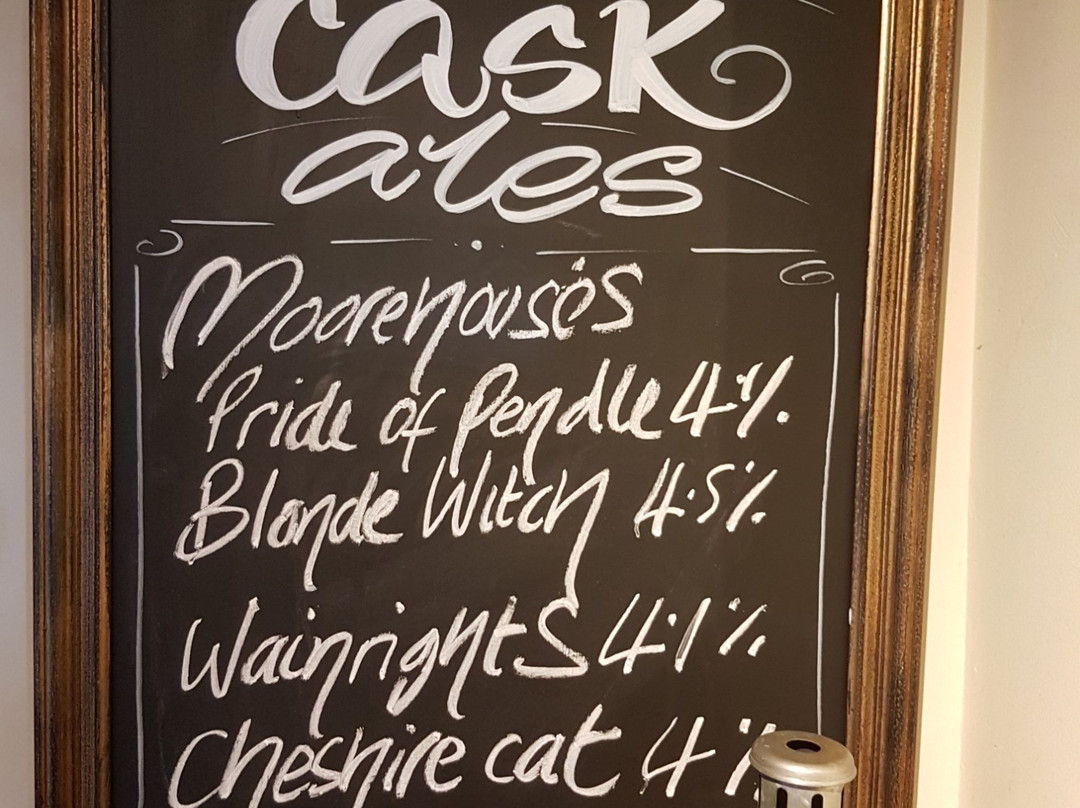 Cask
ales
Moorehouse's
Pride of Pendle 4%.
Blonde Witch 4.5%.
Wainrights 4.1%
Cheshire cat 4%